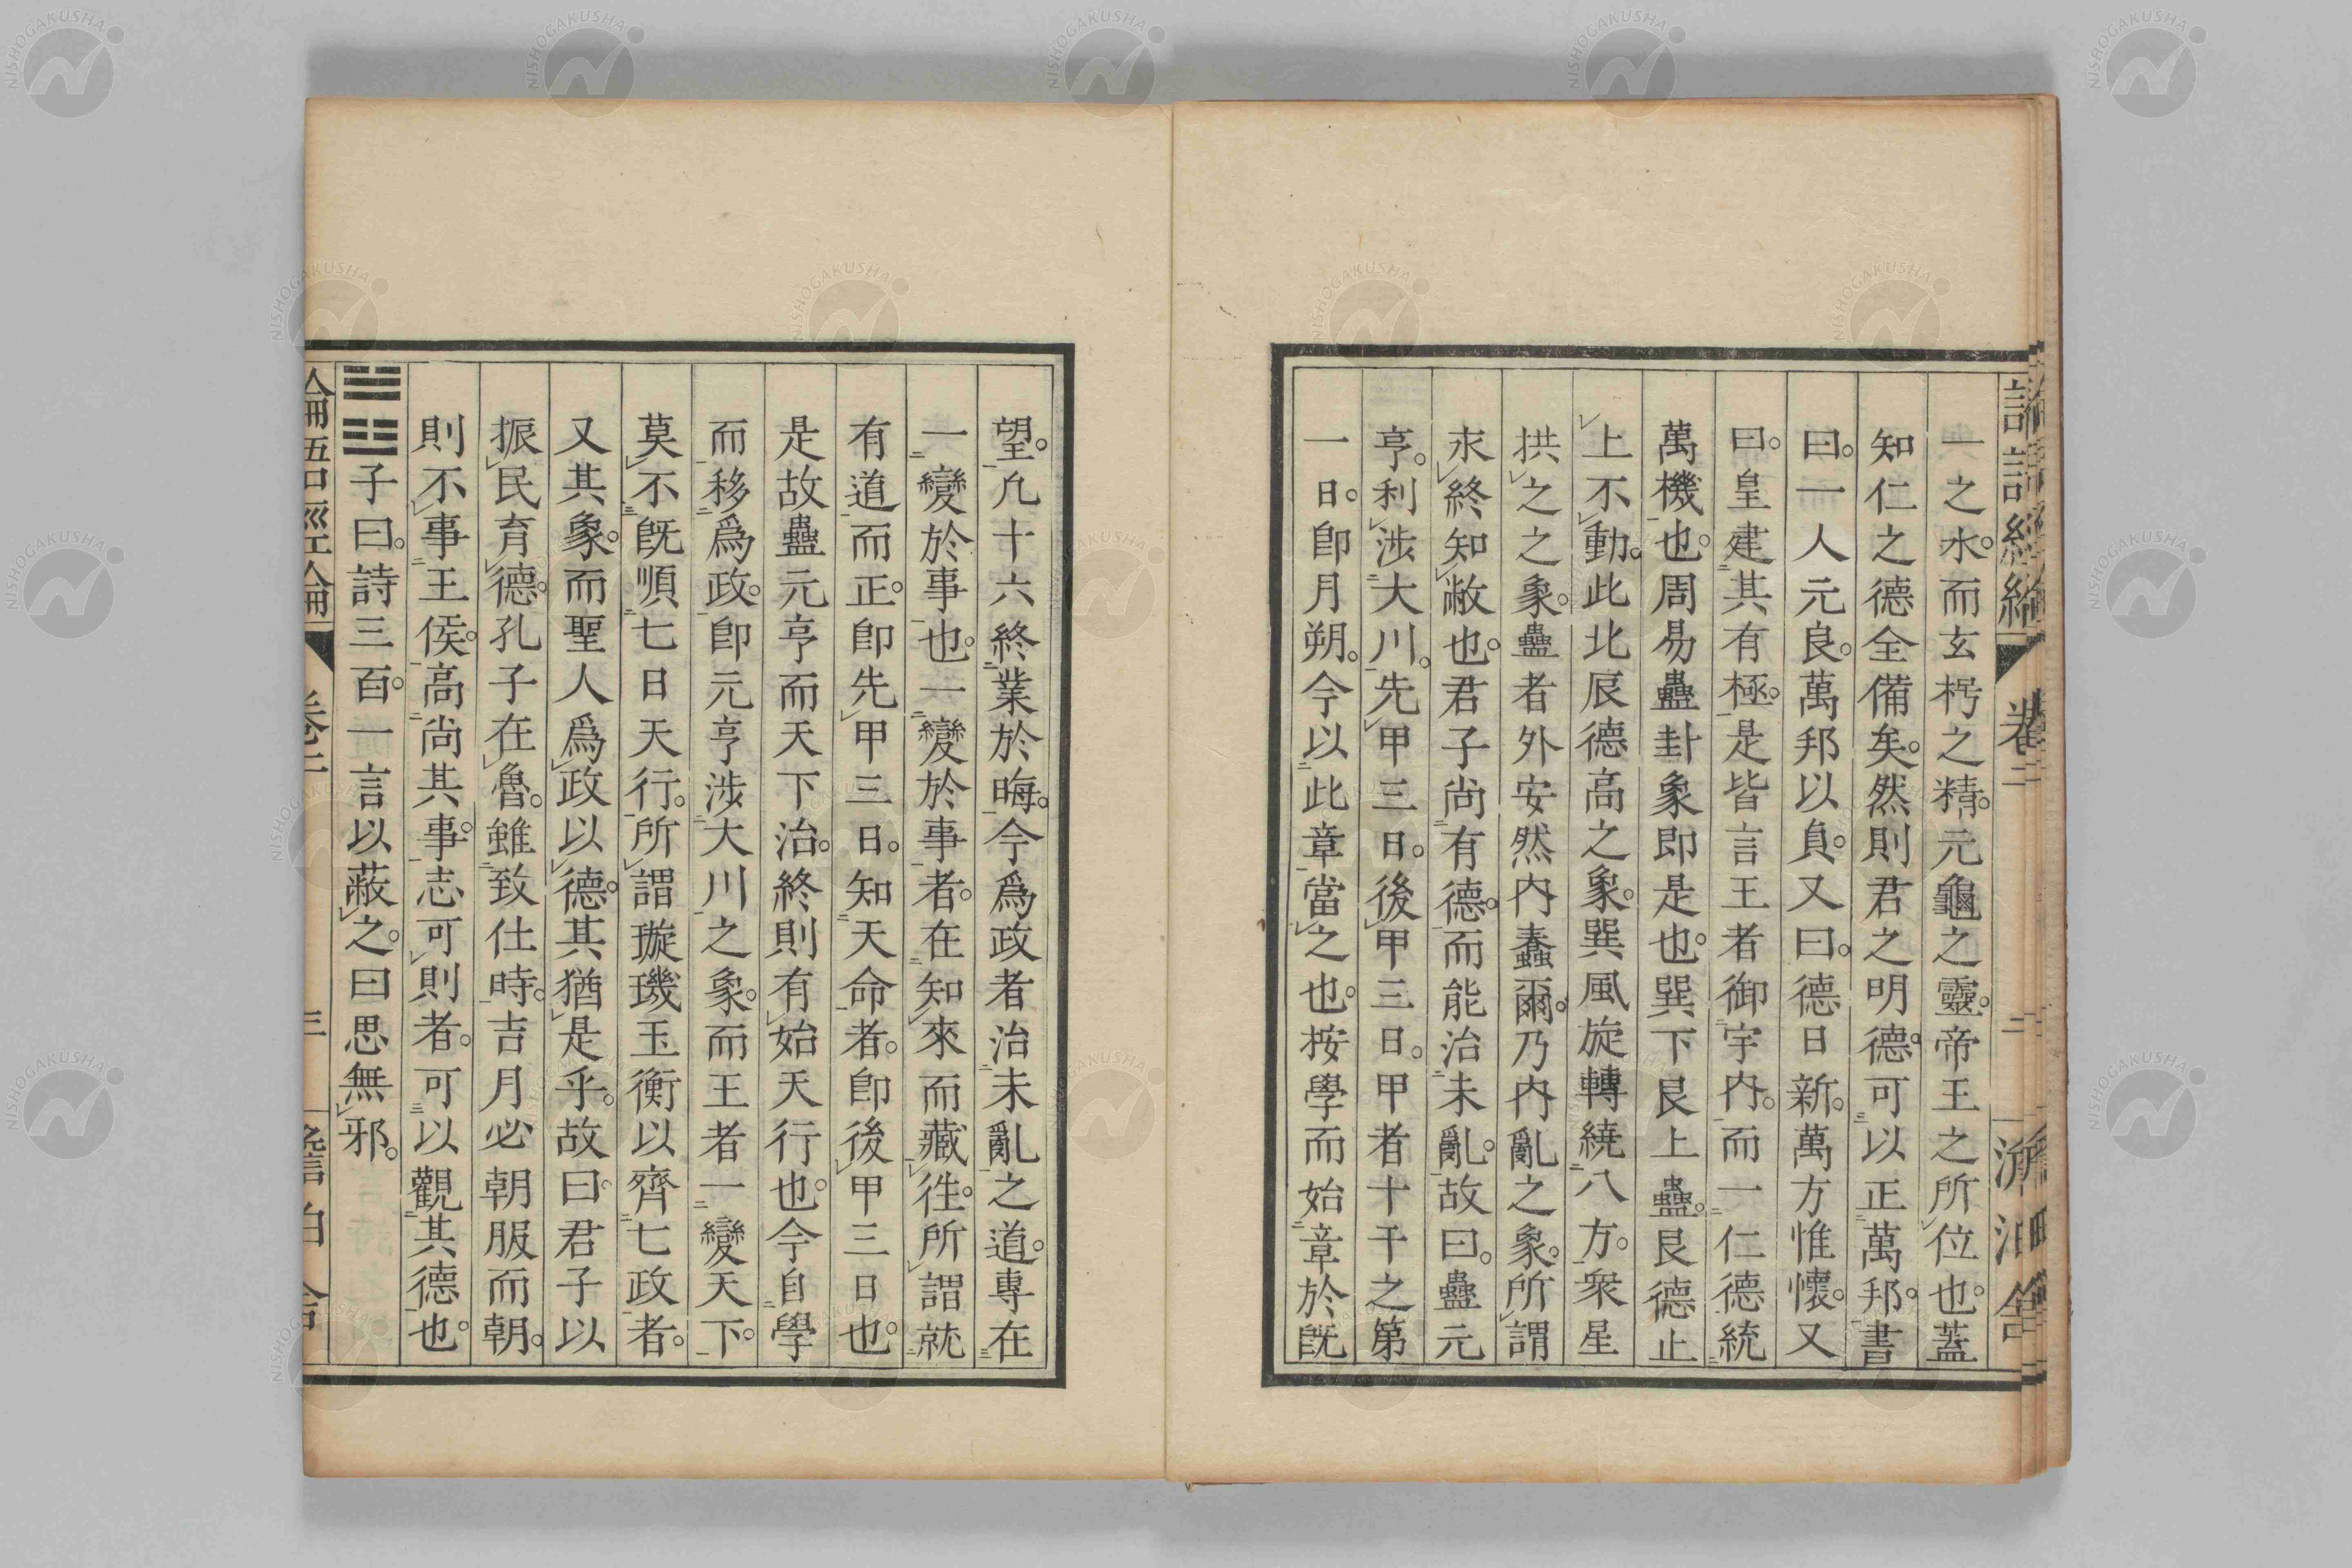 一之水。而玄枵之精。元龜之靈。帝王之所位也。蓋
知仁之德全備矣。然則君之明德。可以正萬邦。書
曰。一人元良。萬邦以貞。又曰。德日新。萬方惟懷。又
曰。皇建其有極。是皆言王者御宇内。而一仁德統
萬機也。周易蠱卦象即是也。巽下艮上蠱。艮德止
上不動。此北辰德高之象。巽風旋轉繞八方。衆星
拱之之象。蠱者外安然内蠢爾。乃内亂之象。所謂
永終知敝也。君子尚有德。而能治未亂。故曰。蠱元
亨。利涉大川。先甲三日。後甲三日。甲者十干之第
一日。卽月朔。今以此章當之也。按學而始章於既
望。凢十六終業於晦。今爲政者治未亂之道。專在
一變於事也。一變於事者。在知來而藏徃。所謂就
有道而正。卽先甲三日。知天命者。卽後甲三日也。
是故蠱元亨而天下治。終則有始天行也。今自學
而移爲政。卽元亨涉大川之象。而王者一變天下。
莫不既順七日天行。所謂璇璣玉衡以齊七政者。
又其象。而聖人爲政以德。其猶是乎。故曰。君子以
振民育德。孔子在魯。雖致仕時。吉月必朝服而朝。
則不事王侯。高尚其事。志可則者。可以觀其德也。
子曰。詩三百。一言以蔽之。曰思無邪。
論語經論 卷二 三